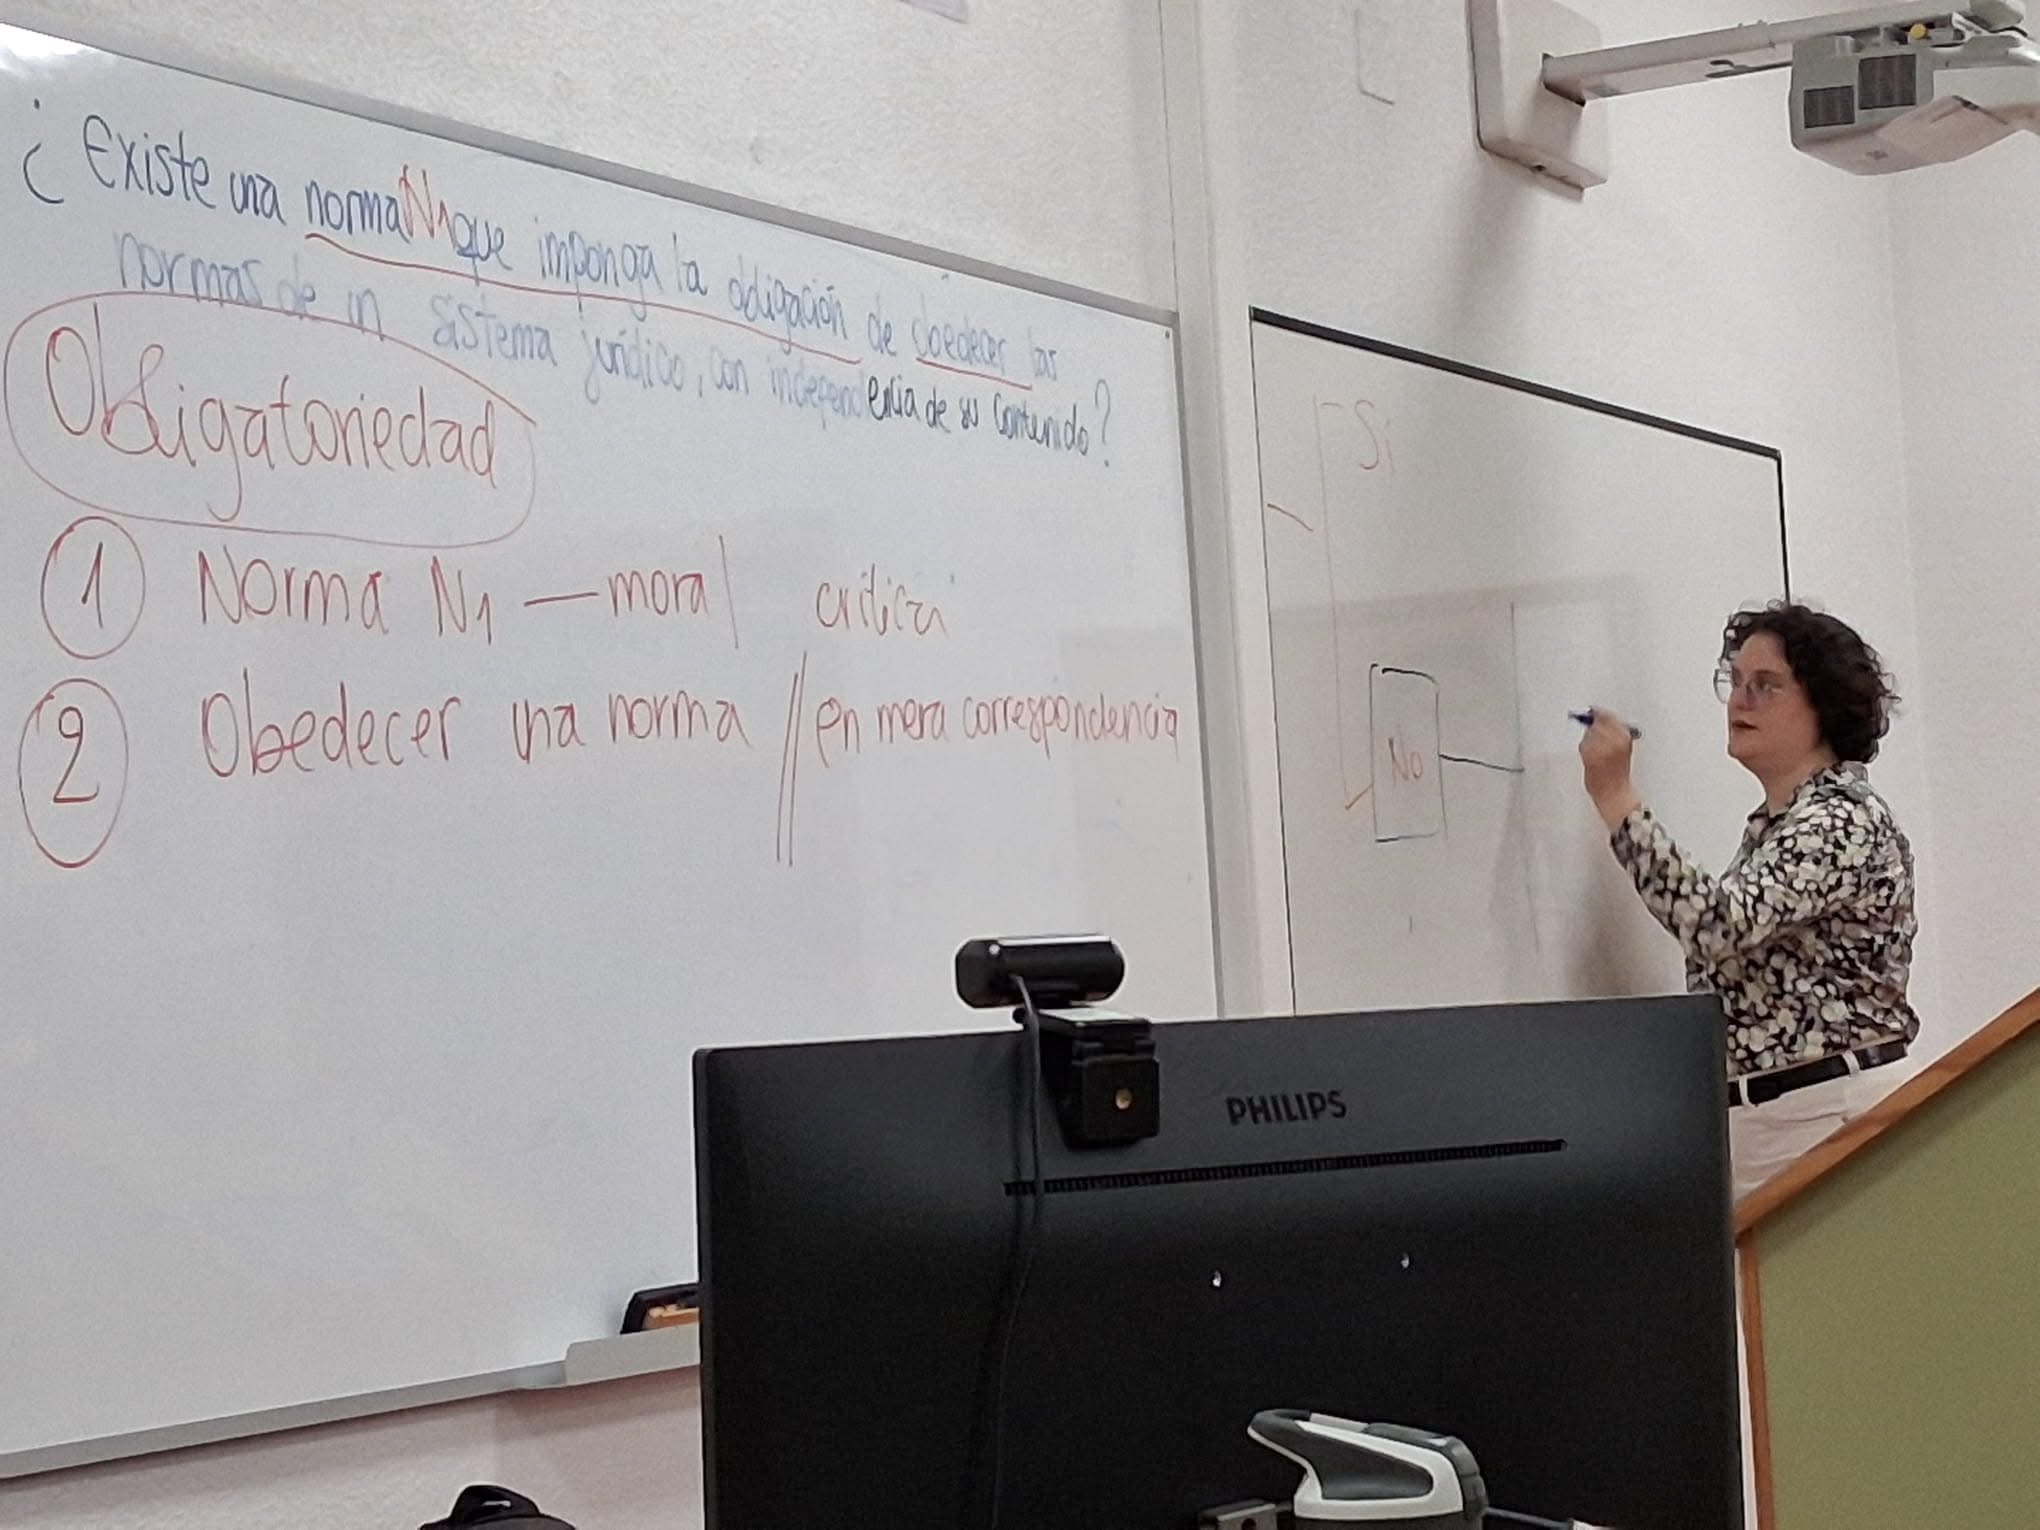 ¿Existe una norma N1 que imponga la obligación de obedecer las
normas de un sistema jurídico, con independencia de su contenido?
Obligatoriedad
1 Norma N1 — moral crítica
2 Obedecer una norma // en mera correspondencia
Sí
No
PHILIPS